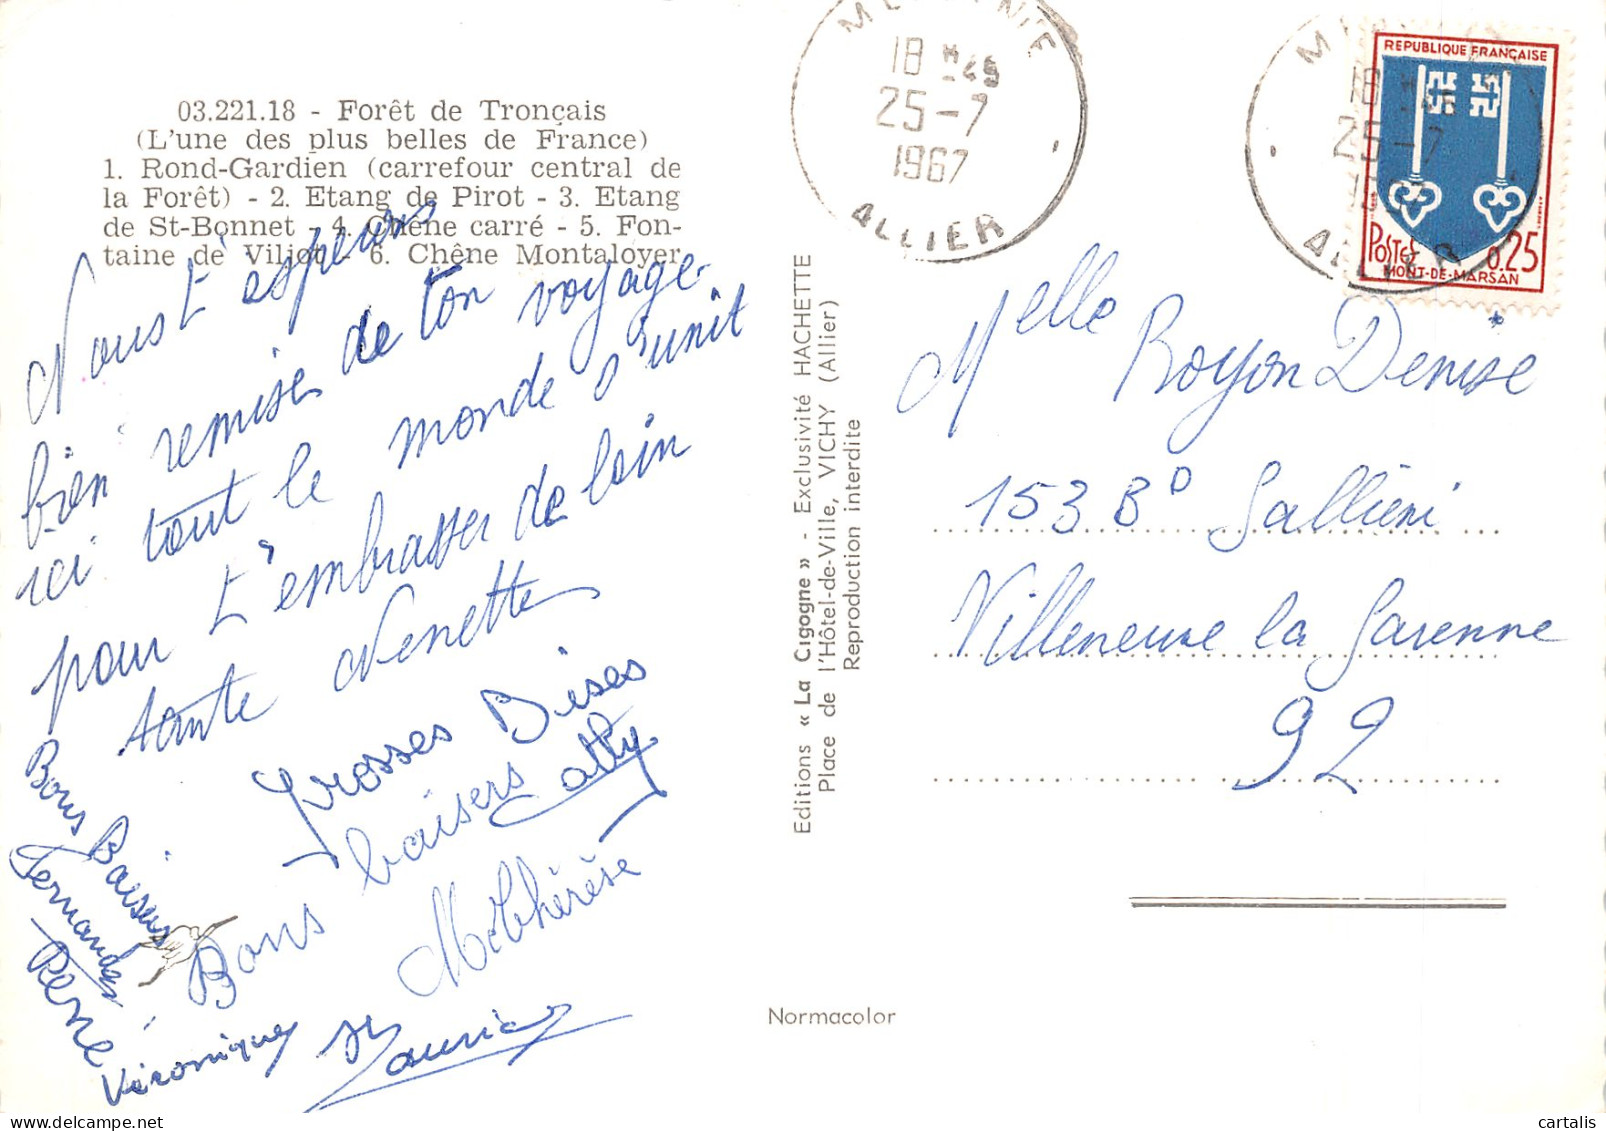 03.221.18 - Forêt de Tronçais
(L'une des plus belles de France)
1. Rond-Gardien (carrefour central de
la Forêt) - 2. Etang de Pirot - 3. Etang
de St-Bonnet - 4. Chêne carré - 5. Fon-
taine de Viljot - 6. Chêne Montaloyer
Nous t'espérons
bien remise de ton voyage
ici tout le monde s'unit
pour t'embrasser de loin
tante Nenette
Grosses Bises
Cathy
Bons baisers
M Thérèse
Bons Baisers
Fernandes
René
Véronique
Maurice
Editions « La Cigogne » - Exclusivité HACHETTE
Place de l'Hôtel-de-Ville, VICHY (Allier)
Reproduction interdite
Normacolor
18 H 45
25-7
1967
ALLIER
18 H 45
25-7
1967
ALLIER
REPUBLIQUE FRANÇAISE
POSTES 0,25
MONT-DE-MARSAN
Melle Royon Denise
153 Bd Gallieni
Villeneuve la Garenne
92
cartalis